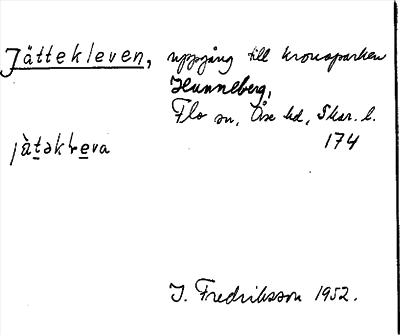 Jättekleven, uppgång till kronoparken
Hunneberg,
Flo sn, Åse hd, Skar. l.
174
jàtəkleva
I. Fredriksson 1952.